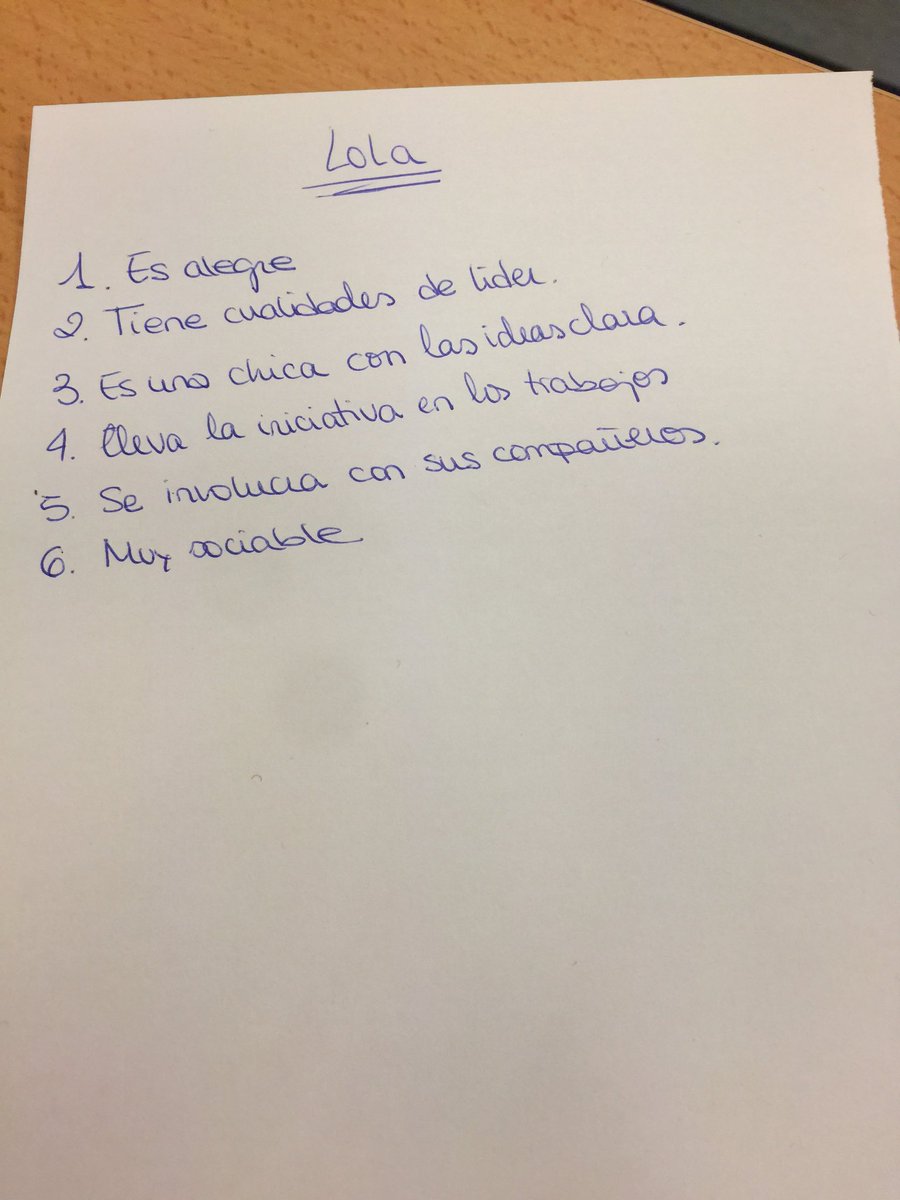 Lola
1. Es alegre
2. Tiene cualidades de lider.
3. Es una chica con las ideas clara.
4. lleva la iniciativa en los trabajos
5. Se involucra con sus compañeros.
6. Muy sociable